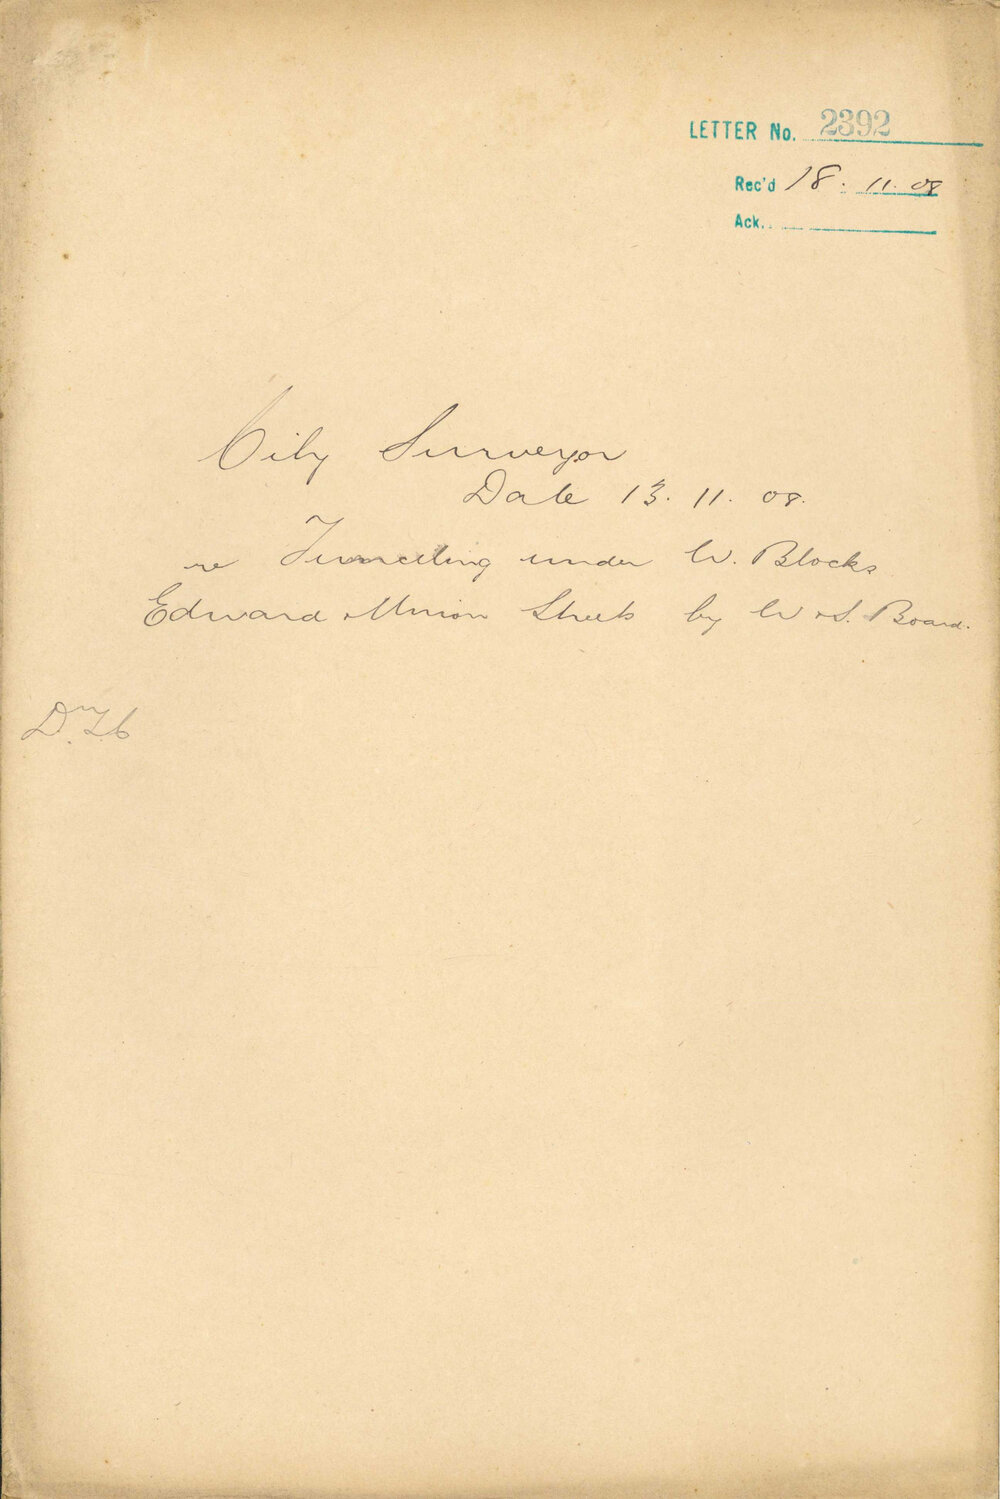 LETTER No. 2392
Rec'd 18. 11. 08
Ack.
City Surveyor
Date 13. 11. 08.
re Tunnelling under W. Blocks
Edward & Union Streets by W & S. Board.